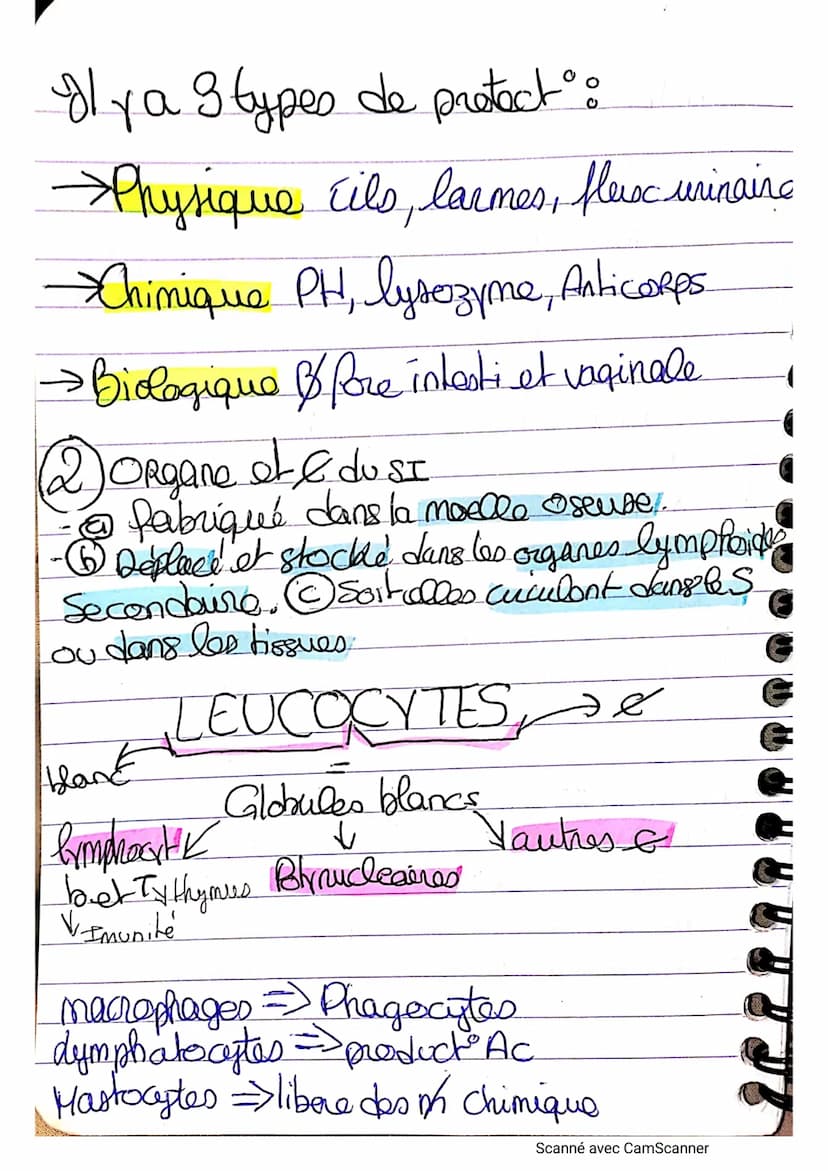 Il y a 3 types de protect° :
→ Physique cils, larmes, flux urinaire
→ Chimique PH, lysozyme, Anticorps
→ Biologique flore intesti et vaginale
② Organe et C du SI
- ⓐ fabriqué dans la moelle oseuse.
- ⓑ Déplacé et stocké dans les organes lymphoides
Secondaire. ⓒ Soit elles circulent dans le S
ou dans les tissues
LEUCOCYTES →
blanc =
Globules blancs
lymphocyt ↙ ↓ ↘ autres C
b et T Thymus Polynucleaires
↓ Imunité
macrophages => Phagocytes
lymphatocytes => product° Ac
Mastocytes => libere des chimique
Scanné avec CamScanner